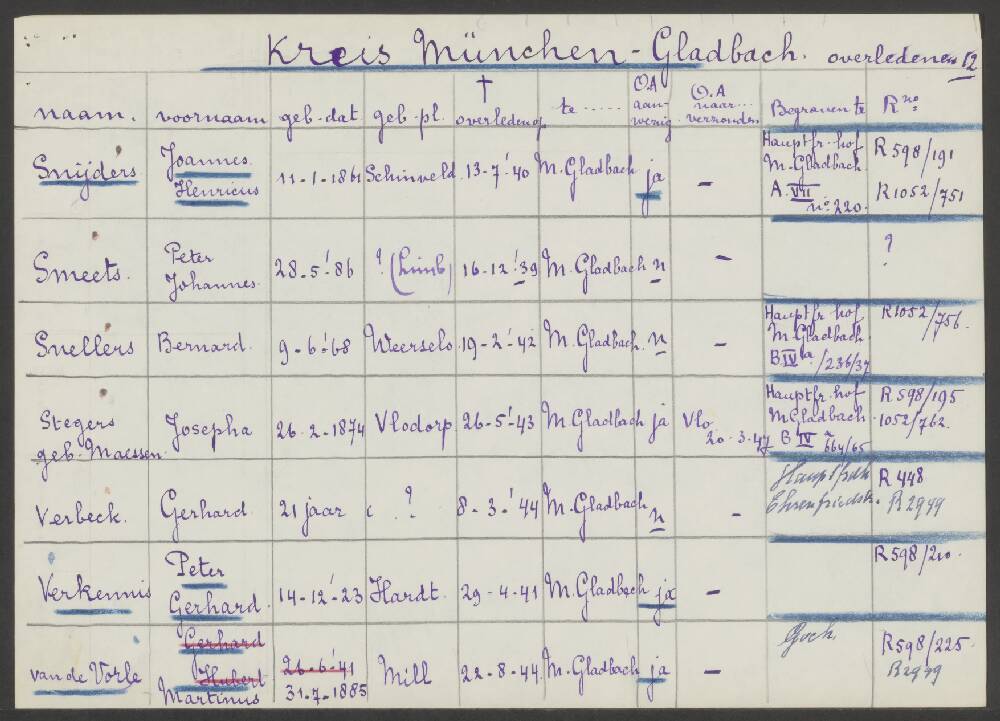 Kreis München-Gladbach. overledenen 12
naam. voornaam geb-dat geb-pl. † overleden op te ...... O.A aan-wezig. O.A naar... verzonden Begraven te R no.
Snijders Joannes Henricus 11-1-1861 Schinveld 13-7-'40 M.Gladbach ja - Hauptfr-hof M.Gladbach A.VII no. 220. R 598/191 R1052/751
Smeets. Peter Johannes 28-5-'86 ? (Limb) 16-12-'39 M.Gladbach n - ?
Snellers Bernard. 9-6-'68 Weerselo 19-2-'42 M.Gladbach. n - Hauptfr. hof M-Gladbach. B IV a /236/37 R1052/756.
Stegers geb. Maessen Josepha 26-2-1874 Vlodorp 26-5-'43 M.Gladbach ja Vlo 20-3-47 Hauptfr-hof M.Gladbach B IV a 664/65 R 598/195 1052/762.
Verbeck. Gerhard 21 jaar ? 8-3-'44 M-Gladbach n - R 448 R2979
Verkennis Peter Gerhard. 14-12-'23 Hardt. 29-4-41 M.Gladbach ja - R598/210.
van de Vorle Gerhard Hubert Martinus 21-6-'41 31-7-1885 Mill 22-8-'44. M-Gladbach ja - Goch. R598/225. R2979